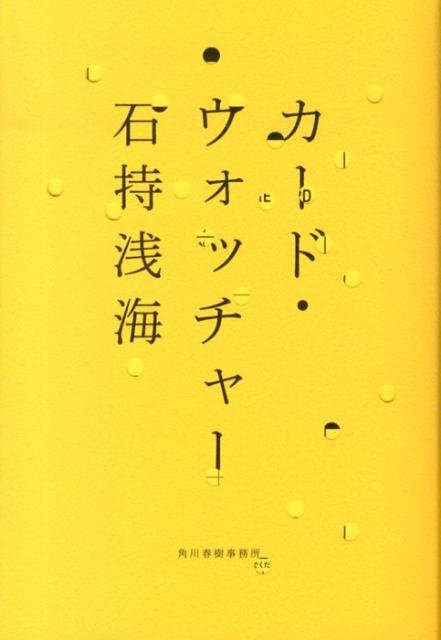 カード・
ウォッチャー
石持浅海
角川春樹事務所